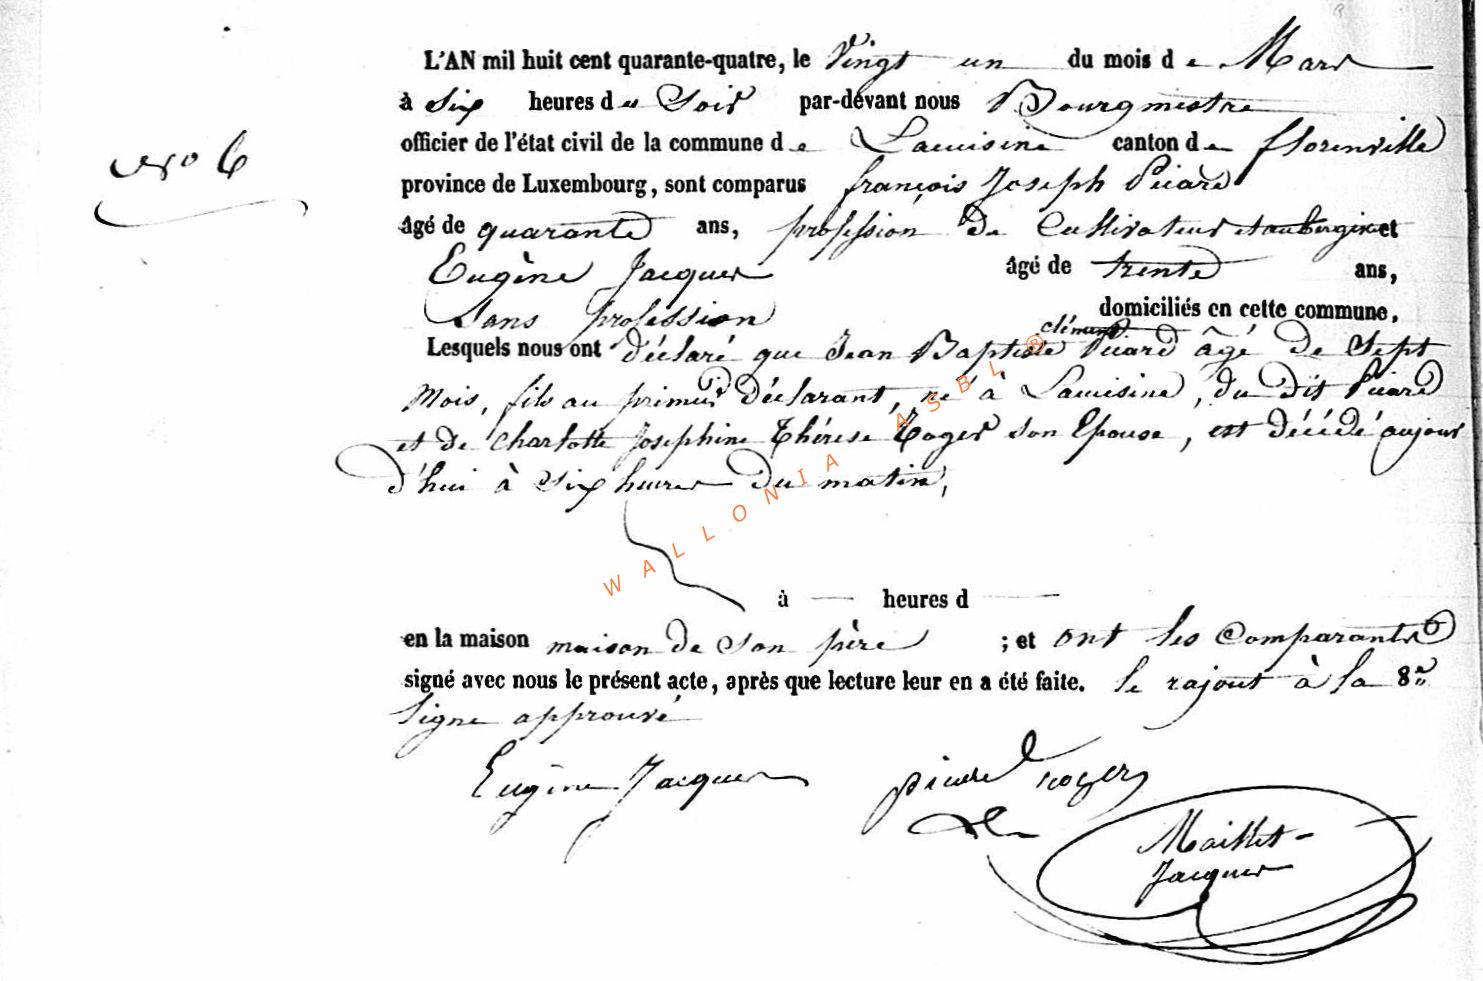 L'AN mil huit cent quarante-quatre, le Vingt un du mois de Mars
à six heures du Soir par-devant nous Bourgmestre
officier de l'état civil de la commune de Lacuisine canton de florenville
province de Luxembourg, sont comparus françois Joseph Picard
N° 6
âgé de quarante ans, profession de Cultivateur et aubergiste et
Eugène Jacques âgé de trente ans,
Sans profession domiciliés en cette commune,
clément
Lesquels nous ont déclaré que Jean Baptiste Picard âgé de Sept
Mois, fils au primus déclarant, né à Lacuisine, du dit Picard
et de Charlotte Josephine Thérese Roger son Epouse, est décédé aujour
d'hui à six heures du matin,
WALLONIA ASBL ®
à heures d
en la maison maison de son père ; et ont les Comparants
signé avec nous le présent acte, après que lecture leur en a été faite. le rajout à la 8me
ligne approuvé
Eugène Jacques
Maillet-
Jacques